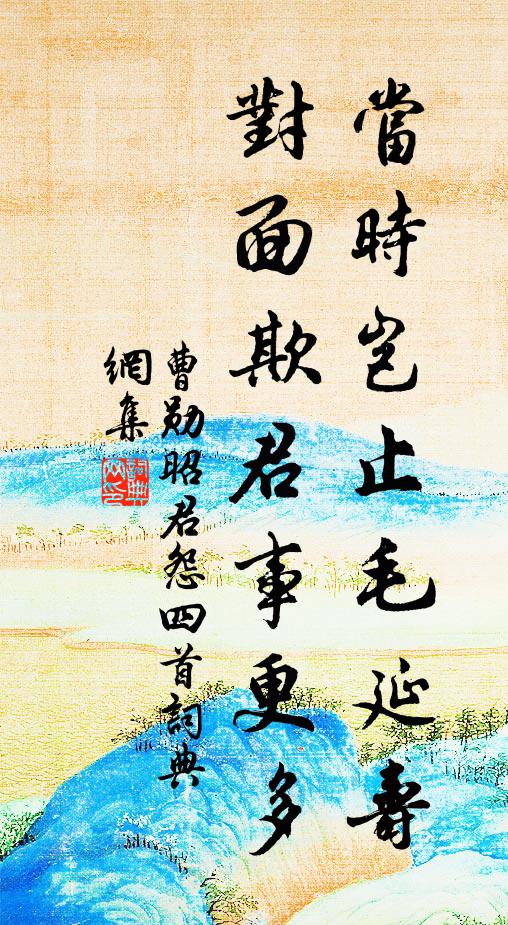 當時豈止毛延壽
對面欺君事更多
曹勛昭君怨四首詞典
網集
詞典
网印